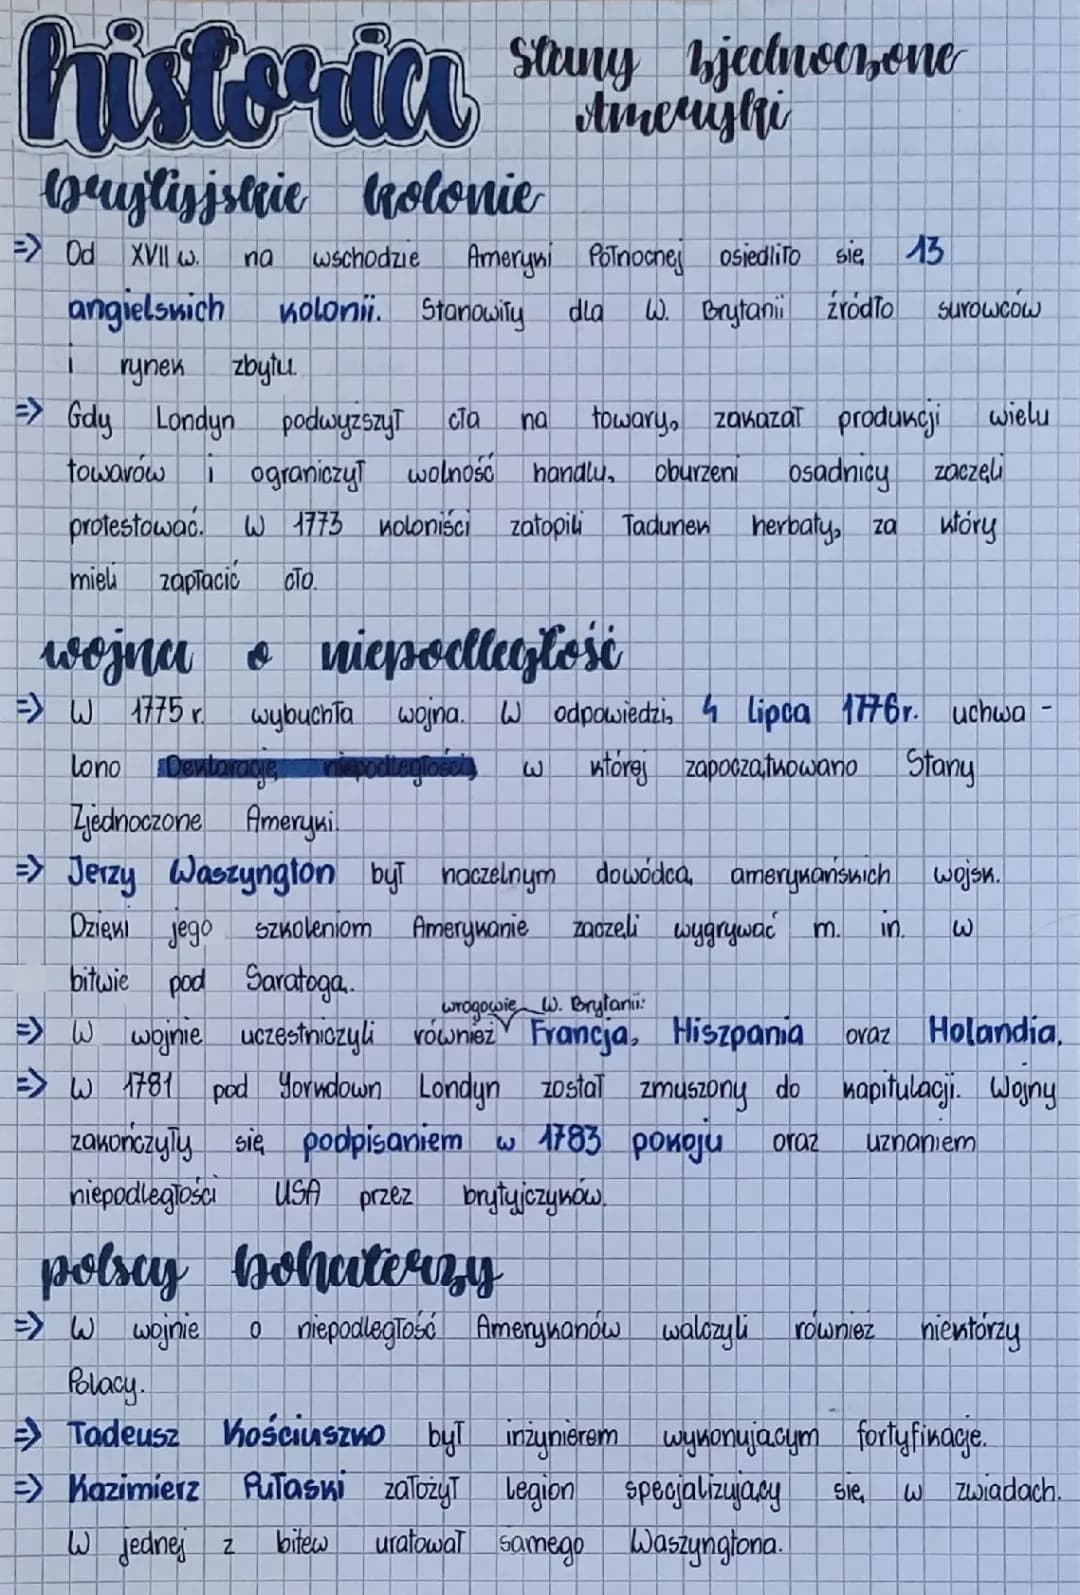 historia Stany Zjednoczone
Ameryki
brytyjskie kolonie
=> Od XVII w. na wschodzie Ameryki Północnej osiedliło się 13
angielskich kolonii. Stanowiły dla W. Brytanii źródło surowców
i rynek zbytu.
=> Gdy Londyn podwyższył cła na towary, zakazał produkcji wielu
towarów i ograniczył wolność handlu, oburzeni osadnicy zaczęli
protestować. W 1773 koloniści zatopili ładunek herbaty, za który
mieli zapłacić cło.
wojna o niepodległość
=> W 1775 r. wybuchła wojna. W odpowiedzi, 4 lipca 1776r. uchwa-
lono Deklarację niepodległości, w której zapoczątkowano Stany
Zjednoczone Ameryki.
=> Jerzy Waszyngton był naczelnym dowódcą amerykańskich wojsk.
Dzięki jego szkoleniom Amerykanie zaczęli wygrywać m. in. w
bitwie pod Saratogą.
wrogowie W. Brytanii:
=> W wojnie uczestniczyli również Francja, Hiszpania oraz Holandia.
=> W 1781 pod Yorkdown Londyn został zmuszony do kapitulacji. Wojny
zakończyły się podpisaniem w 1783 pokoju oraz uznaniem
niepodległości USA przez brytyjczyków.
polscy bohaterzy
=> W wojnie o niepodległość Amerykanów walczyli również niektórzy
Polacy.
=> Tadeusz Kościuszko był inżynierem wykonującym fortyfikacje.
=> Kazimierz Pułaski założył legion specjalizujący się w zwiadach.
W jednej z bitew uratował samego Waszyngtona.